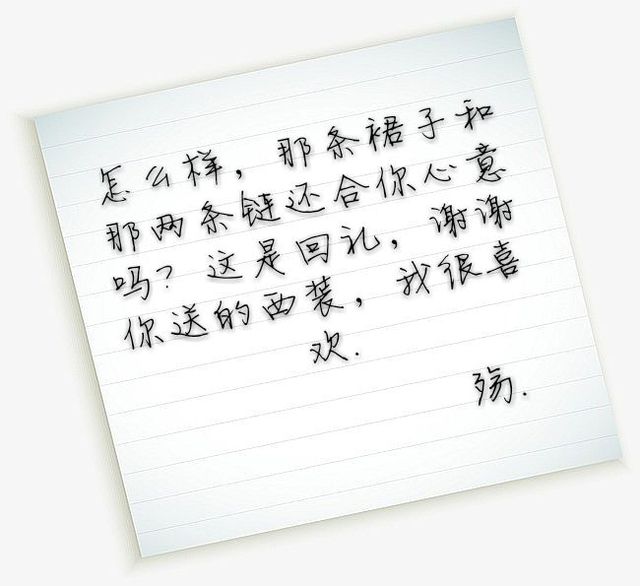 怎么样，那条裙子和
那两条链还合你心意
吗？这是回礼，谢谢
你送的西装，我很喜
欢.
殇.